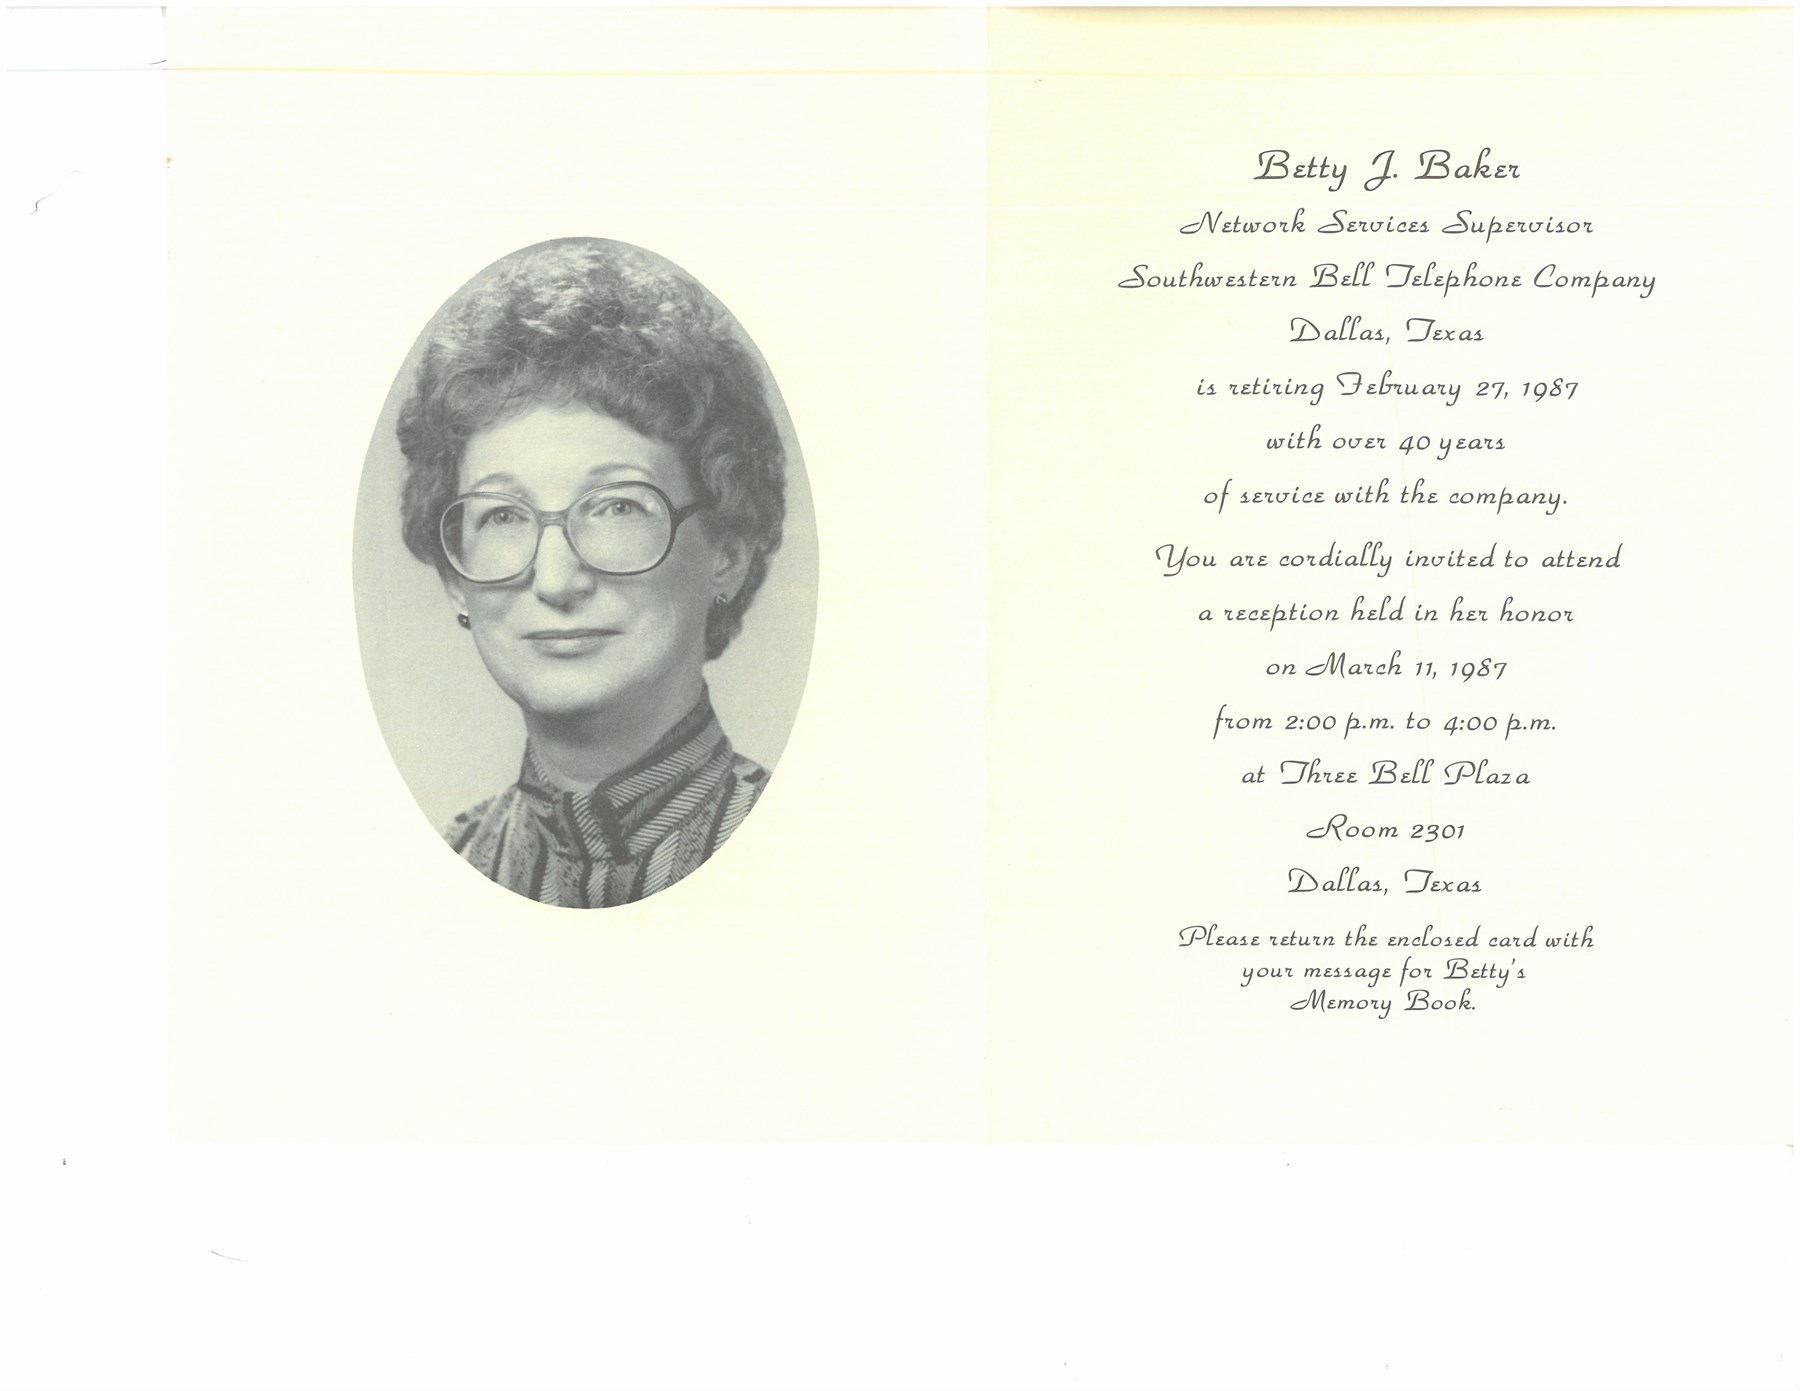 Betty J. Baker
Network Services Supervisor
Southwestern Bell Telephone Company
Dallas, Texas
is retiring February 27, 1987
with over 40 years
of service with the company.
You are cordially invited to attend
a reception held in her honor
on March 11, 1987
from 2:00 p.m. to 4:00 p.m.
at Three Bell Plaza
Room 2301
Dallas, Texas
Please return the enclosed card with
your message for Betty's
Memory Book.